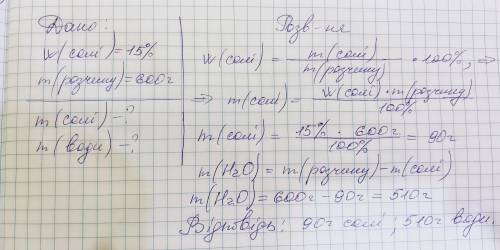 Дано:
w(солі)=15%
m(розчину)=600г
m(солі)-?
m(води)-?
Розв-ня
w(солі) = m(солі) / m(розчину) · 100%, ⇒
⇒ m(солі) = w(солі) · m(розчину) / 100%
m(солі) = 15% · 600г / 100% = 90г
m(H₂O) = m(розчину) - m(солі)
m(H₂O) = 600г - 90г = 510г
Відповідь: 90г солі; 510г води.